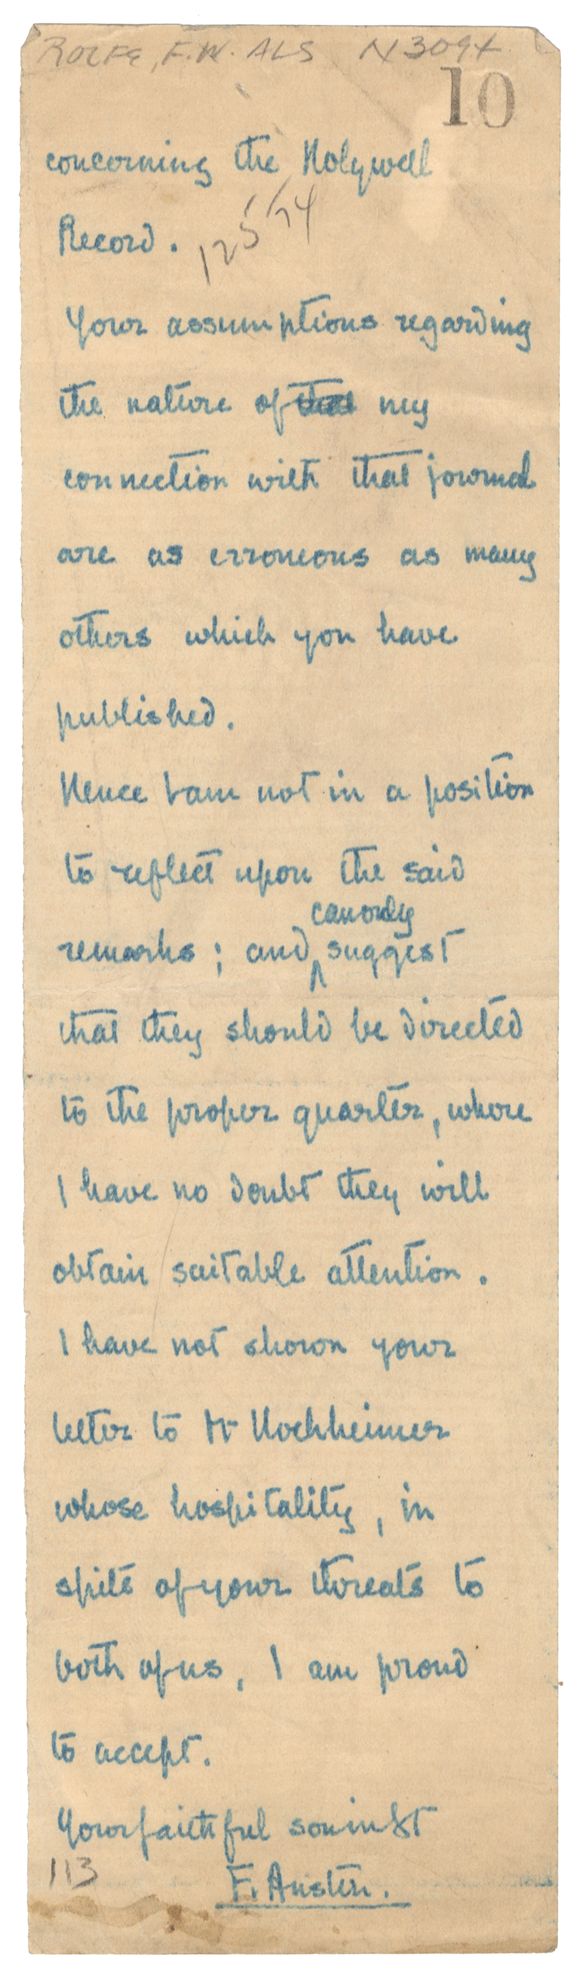 ROLFE, F.W. ALS N3094
10
concerning the Holywell
Record.
125/74
Your assumptions regarding
the nature of my
connection with that journal
are as erroneous as many
others which you have
published.
Hence I am not in a position
to reflect upon the said
can only
remarks; and ^ suggest
that they should be directed
to the proper quarter, where
I have no doubt they will
obtain suitable attention.
I have not shown your
letter to Mr Hochheimer
whose hospitality, in
spite of your threats to
both of us, I am proud
to accept.
Your faithful son in
113
F. Austin.